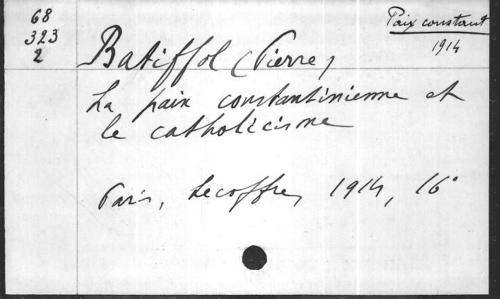 68
323
2
Paix constant
1914
Batiffol (Pierre)
La paix constantinienne et
le catholicisme
Paris, Lecoffre, 1914, 16°